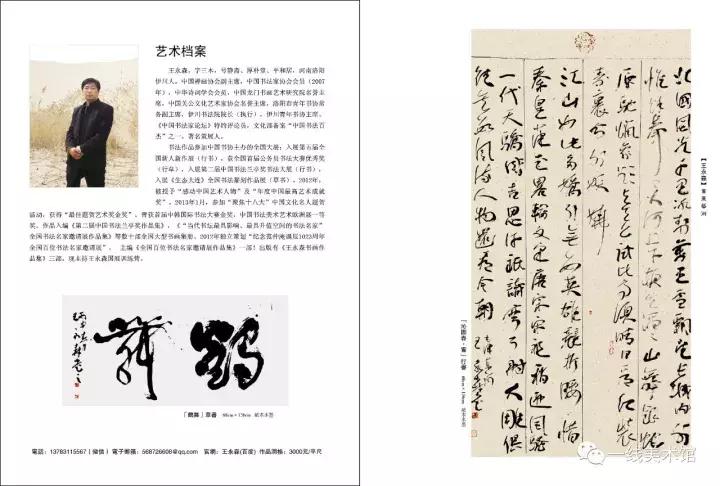 艺术档案
王永森，字三木，号静斋、厚朴堂、平和居，河南洛阳
伊川人。中国禅画协会副主席，中国书法家协会会员（2007
年），中华诗词学会会员，中国龙门书画艺术研究院名誉主
席，中国关公文化艺术家协会名誉主席，洛阳市青年书协常
务副主席，伊川书法院院长（执行），伊川青年书协主席，
《中国书法家论坛》特约评论员，文化部备案“中国书法百
杰”之一，著名策展人。
书法作品参加中国书协主办的全国大展：入展第五届全
国新人新作展（行书），获全国首届公务员书法大赛优秀奖
（行草），入展第二届中国书法兰亭奖书法大展（行书），
入展《生态大连》全国书法篆刻作品展（草书）。2012年，
被授予“感动中国艺术人物”及“年度中国最高艺术成就
奖”。2013年1月，参加“聚焦十八大”中国文化名人题贺
活动，获得“最佳题贺艺术奖金奖”。曾获首届中韩国际书法大赛金奖，中国书法美术艺术欧洲展一等
奖。作品入编《第二届中国书法兰亭奖作品集》、《“当代书法最具影响、最具升值空间的书法名家”
全国书法名家邀请展作品集》等数十部全国大型书画集册。2012年独立策划“纪念范仲淹诞辰1023周年
全国百位书法名家邀请展”， 主编《全国百位书法名家邀请展作品集》一部！出版有《王永森书画作
品集》三部。现主持王永森国展训练营。
鶴舞
「鶴舞」草書 68cm×138cm 紙本水墨
電話：13783115567（微信） 電子郵箱：568726608@qq.com 官網：王永森(百度) 作品潤格：3000元/平尺
北國風光千里冰封萬里雪飄望長城內外
惟餘莽莽大河上下頓失滔滔山舞銀蛇
原馳蠟象欲與天公試比高須晴日看紅裝
素裹分外妖嬈
江山如此多嬌引無數英雄競折腰惜
秦皇漢武略輸文采唐宗宋祖稍遜風騷
一代天驕成吉思汗祇識彎弓射大雕俱
往矣數風流人物還看今朝
「沁園春·雪」行書 68cm×138cm 紙本水墨
【王永森】
一线美术馆